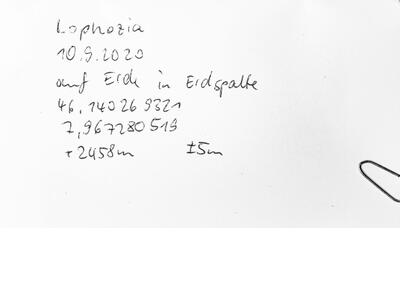 Lophozia
10.9.2020
auf Erde in Erdspalte
46,140269321
7,967280519
+2458m ±5m